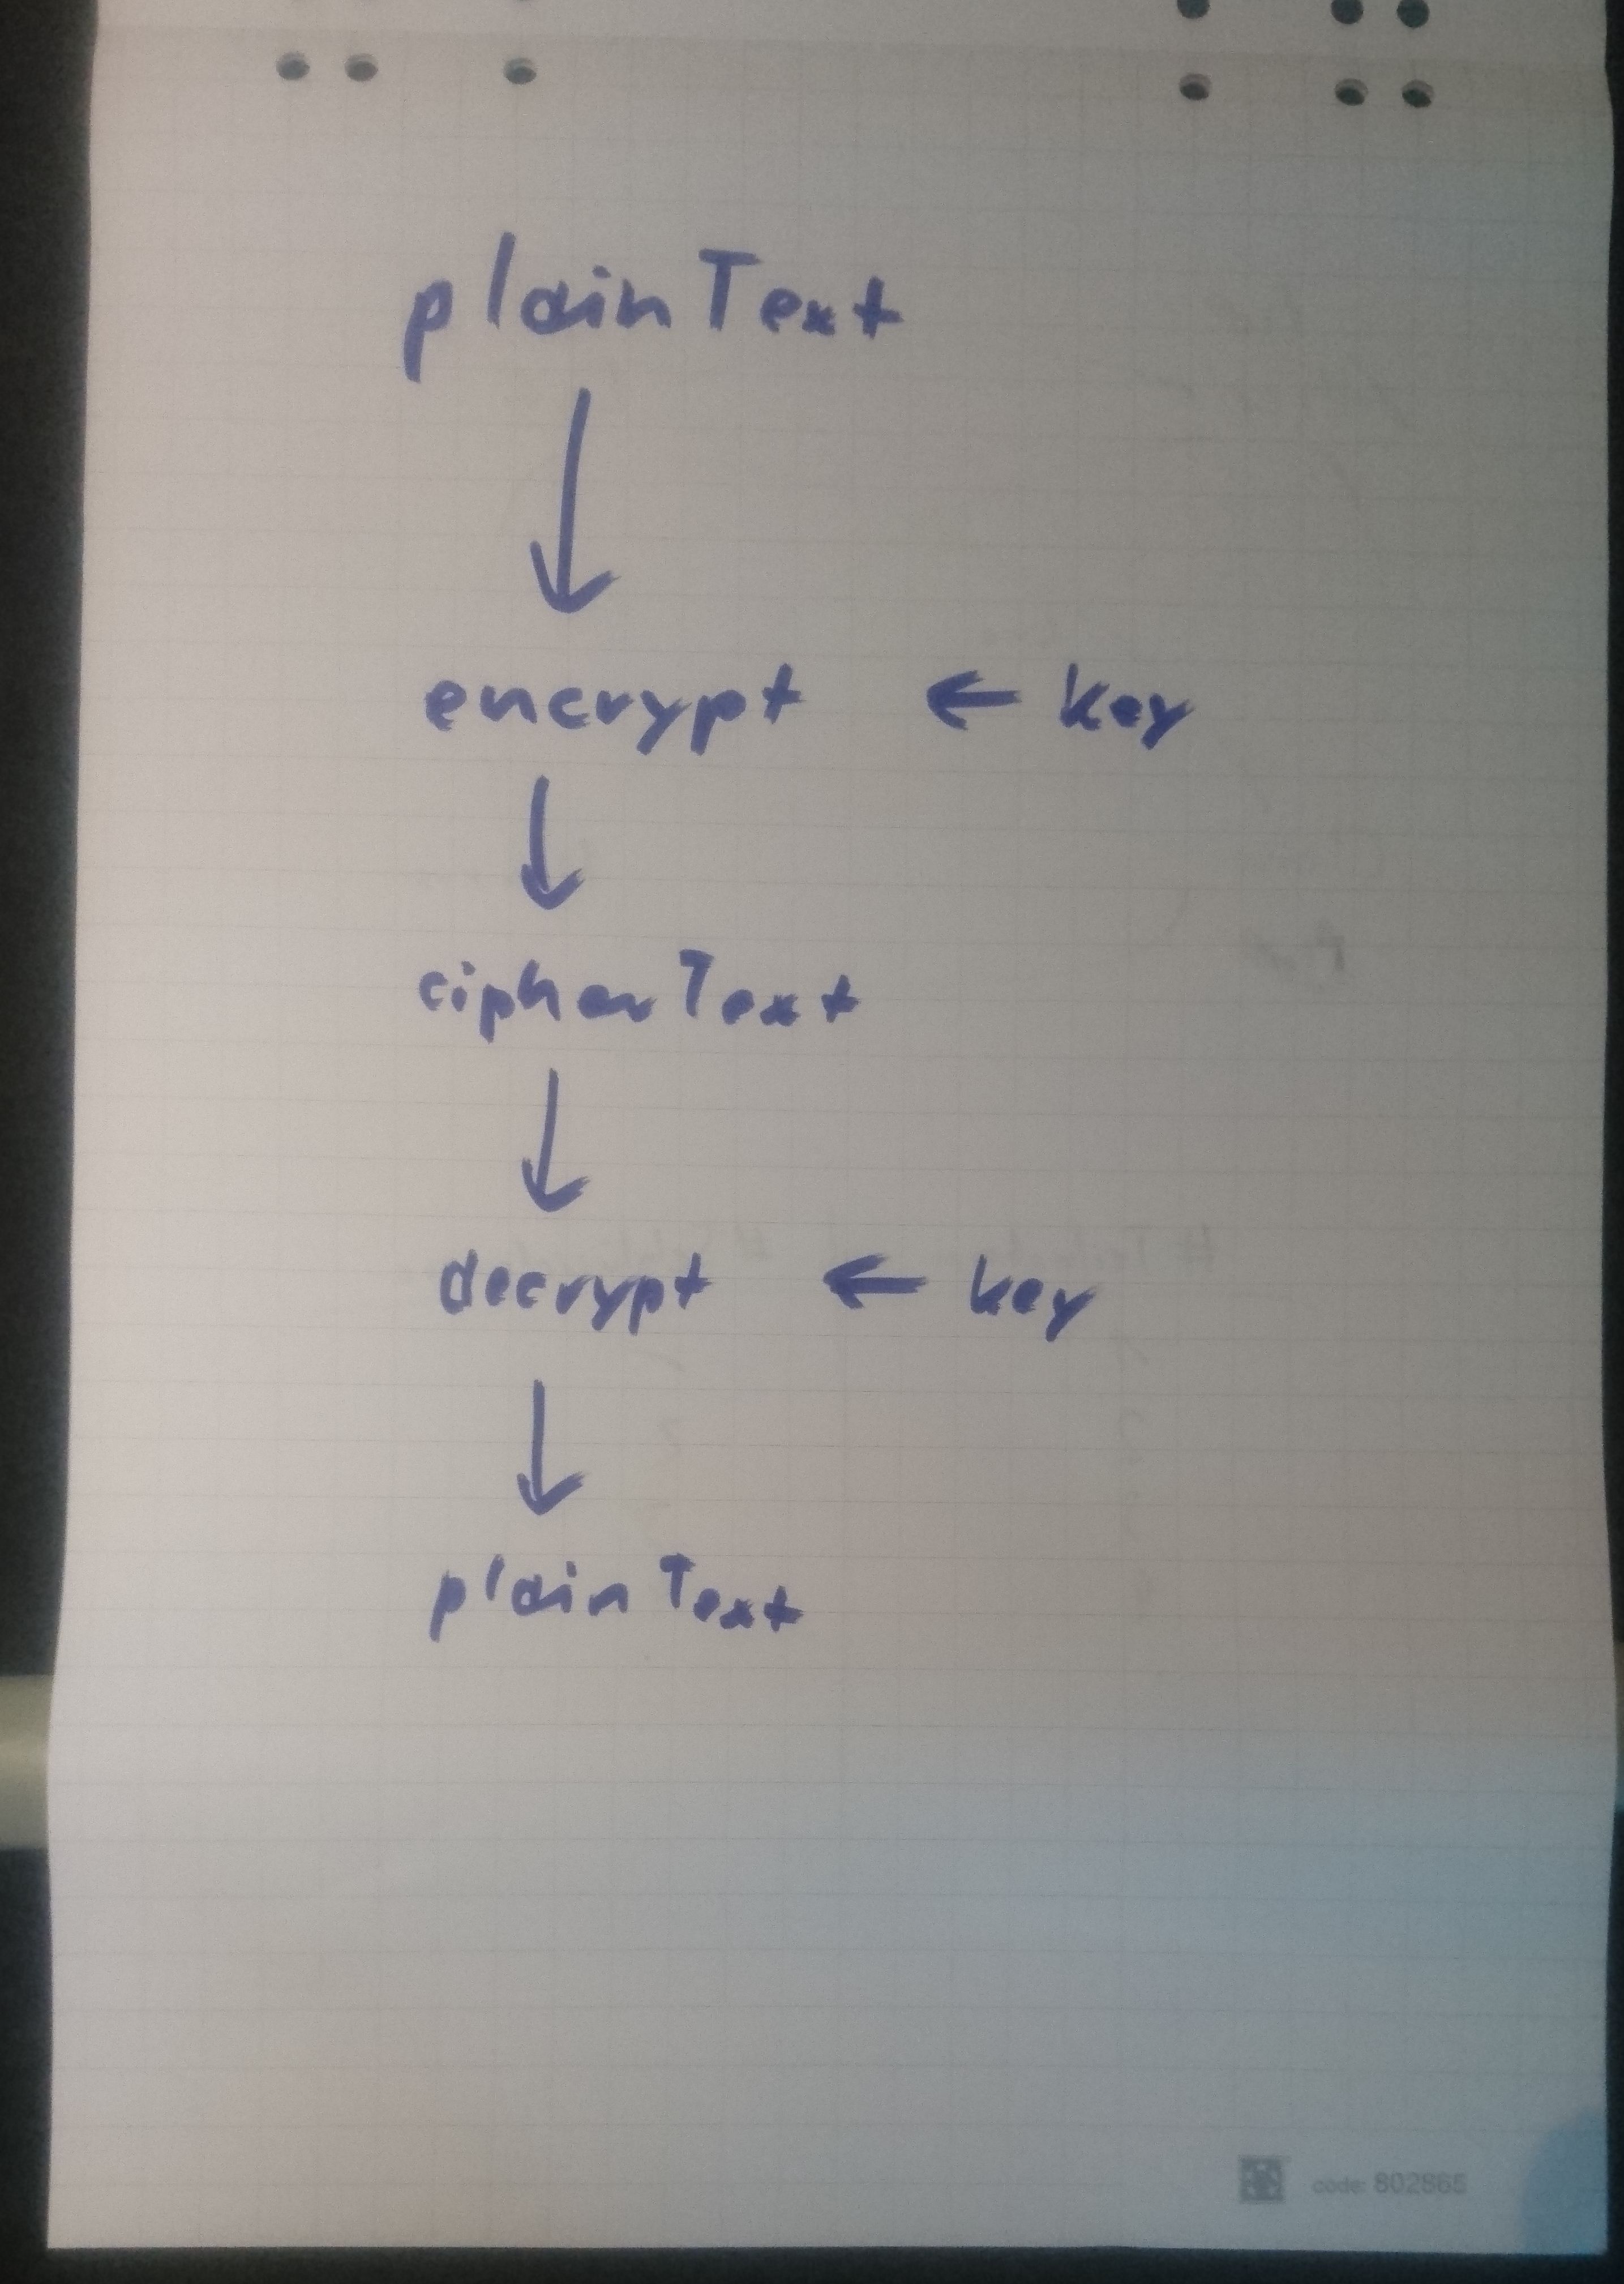 plainText
↓
encrypt ← key
↓
cipherText
↓
decrypt ← key
↓
plainText
code: 802865